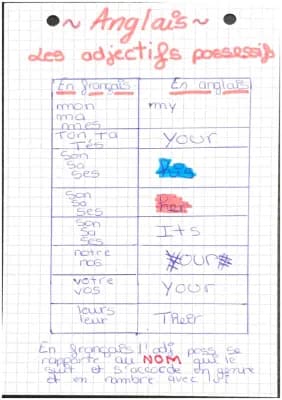 ~ Anglais ~
Les adjectifs possessifs
En français En anglais
mon my
ma
mes
Ton Ta Your
Tes
Son his
Sa
Ses
Son her
Sa
Ses
Son Its
Sa
Ses
notre Our
nos
votre Your
vos
leurs Their
leur
En français l'adj poss se
rapporte au NOM qui le
suit et s'accorde en genre
et en nombre avec lui